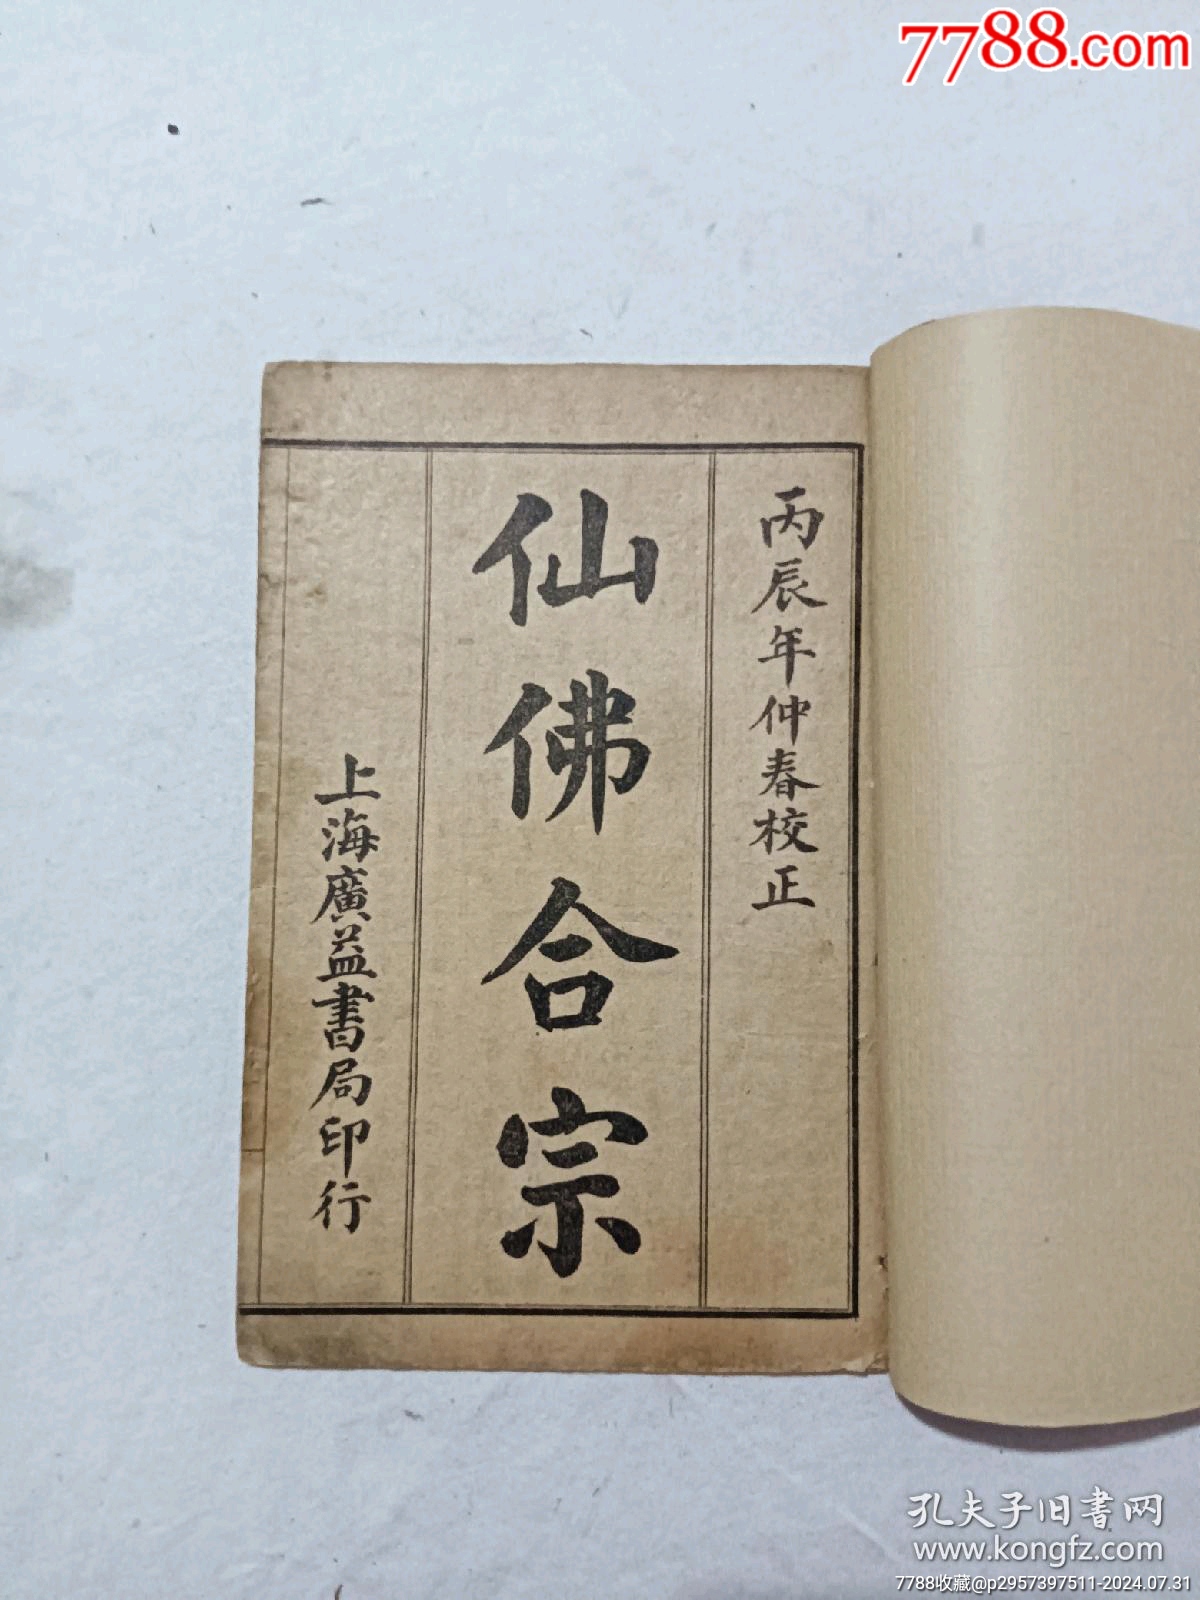 7788.com
丙辰年仲春校正
仙佛合宗
上海廣益書局印行
孔夫子旧書网
www.kongfz.com
7788收藏@p2957397511-2024.07.31